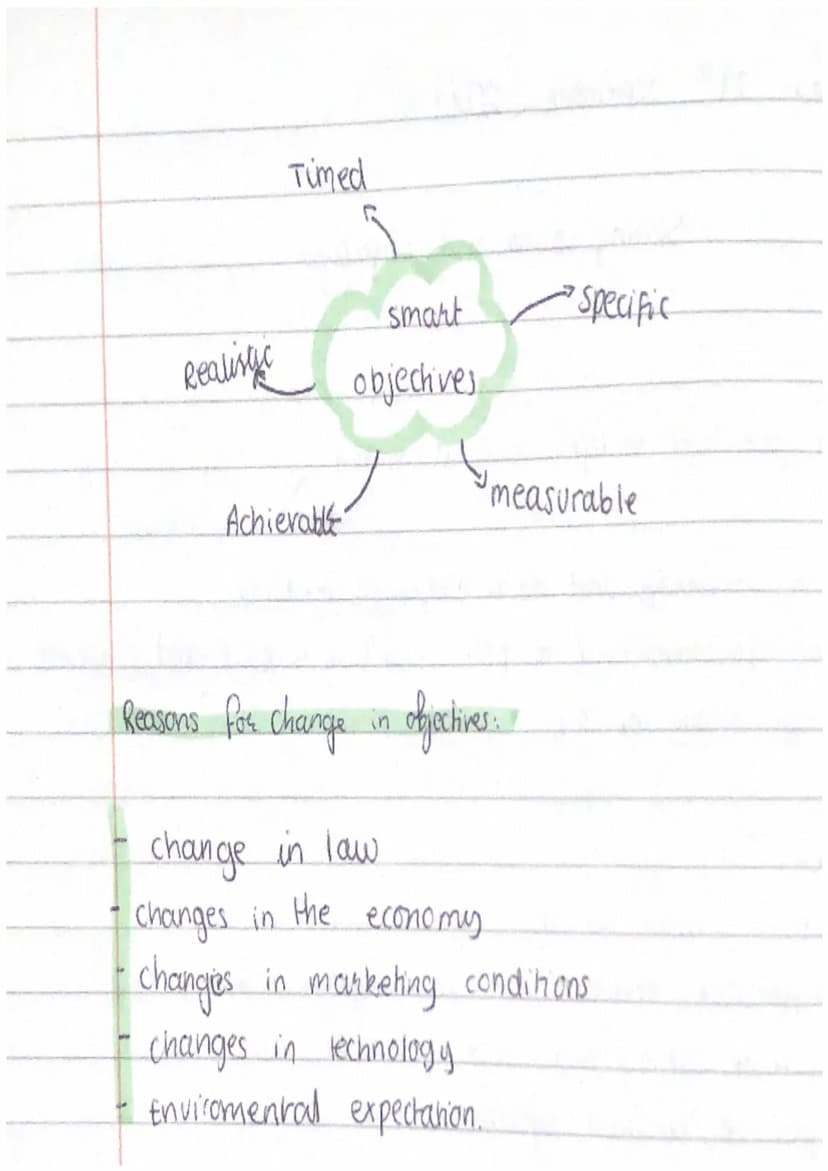 Timed
smart
objectives
Specific
Realistic
measurable
Achievable
Reasons for change in objectives:
- change in law
- changes in the economy
- changes in marketing conditions
- changes in technology
- Enviromental expectation.